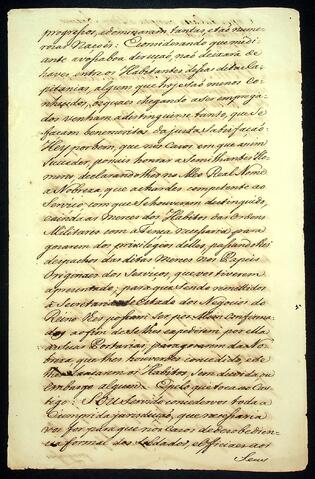 progressos, e dominaram tantas, e tão nume-
rosas Nações: Considerando que medi-
ante a vossa boa direcção não deixará de
haver entre os Habitantes dessas ditas Ca-
pitanias, algum que hoje está menos Co-
nhecido, os quaes chegando a ser emprega-
dos venham a destinguirse tanto, que se
façam benemeritos da justa Satisfação:
Hey por bem, que nos Casos em que assim
Succeder, possais honrar a Semilhantes Ho-
mens, declarando-lhes no Meo Real Nome
a Nobreza, que achardes competente ao
Serviço com que se houverem distinguido,
as Merces dos Habitos das Ordens
Militares com a Tença necessaria para
gozarem dos privilegios dellas, passando lhe
despachos das ditas Merces nos Papeis
Originaes dos Serviços, que vos tiverem
aprezentado; para que sendo remettidos
á Secretaria de Estado dos Negocios do
Reino Nos possam ser por Mim Confirma-
dos a o fim de se lhes expedirem por ella
as suas Portarias, para gozarem da No-
breza, que lhes houverdes concedido, e de
os Habitos, sem duvida ou
embargo algum. Pelo que toca ao Cas-
tigo: Sou Servido concedervos toda a
Cumprida jurisdicção, que necessaria
vos for, para que nos Cazos de desobedien-
cia formal dos Soldados, e Officiaes aos
Seus